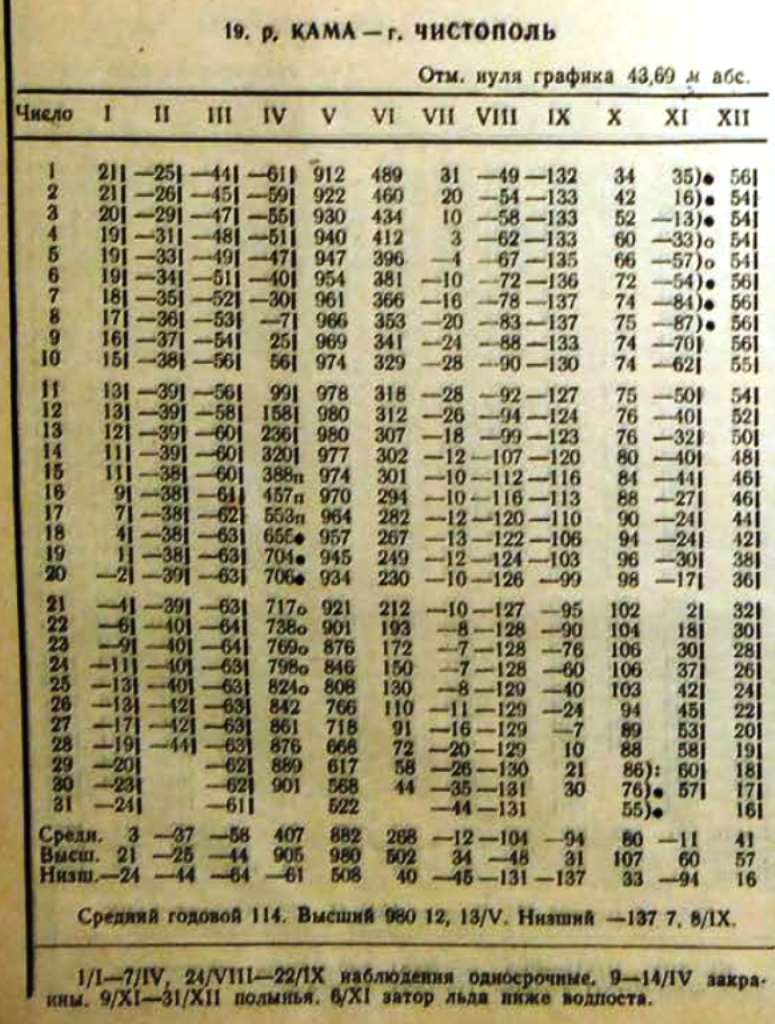 19. р. КАМА — г. ЧИСТОПОЛЬ
Отм. нуля графика 43,69 м абс.
Число I II III IV V VI VII VIII IX X XI XII
1 21| —25| —44| —61| 912 489 31 —49 —132 34 35)● 56|
2 21| —26| —45| —59| 922 460 20 —54 —133 42 16)● 54|
3 20| —29| —47| —55| 930 434 10 —58 —133 52 —13)● 54|
4 19| —31| —48| —51| 940 412 3 —62 —133 60 —33)○ 54|
5 19| —33| —49| —47| 947 396 —4 —67 —135 66 —57)○ 54|
6 19| —34| —51| —40| 954 381 —10 —72 —136 72 —54)● 56|
7 18| —35| —52| —30| 961 366 —16 —78 —137 74 —84)● 56|
8 17| —36| —53| —7| 966 353 —20 —83 —137 75 —87)● 56|
9 16| —37| —54| 25| 969 341 —24 —88 —133 74 —70| 56|
10 15| —38| —56| 56| 974 329 —28 —90 —130 74 —62| 55|
11 13| —39| —56| 99| 978 318 —28 —92 —127 75 —50| 54|
12 13| —39| —58| 158| 980 312 —26 —94 —124 76 —40| 52|
13 12| —39| —60| 236| 980 307 —18 —99 —123 76 —32| 50|
14 11| —39| —60| 320| 977 302 —12 —107 —120 80 —40| 48|
15 11| —38| —60| 388п 974 301 —10 —112 —116 84 —44| 46|
16 9| —38| —61| 457п 970 294 —10 —116 —113 88 —27| 46|
17 7| —38| —62| 553п 964 282 —12 —120 —110 90 —24| 44|
18 4| —38| —63| 655● 957 267 —13 —122 —106 94 —24| 42|
19 1| —38| —63| 704● 945 249 —12 —124 —103 96 —30| 38|
20 —2| —39| —63| 706● 934 230 —10 —126 —99 98 —17| 36|
21 —4| —39| —63| 717○ 921 212 —10 —127 —95 102 2| 32|
22 —6| —40| —64| 738○ 901 193 —8 —128 —90 104 18| 30|
23 —9| —40| —64| 769○ 876 172 —7 —128 —76 106 30| 28|
24 —11| —40| —63| 798○ 846 150 —7 —128 —60 106 37| 26|
25 —13| —40| —63| 824○ 808 130 —8 —129 —40 103 42| 24|
26 —13| —42| —63| 842 766 110 —11 —129 —24 94 45| 22|
27 —17| —42| —63| 861 718 91 —16 —129 —7 89 53| 20|
28 —19| —44| —63| 876 668 72 —20 —129 10 88 58| 19|
29 —20| —62| 889 617 58 —26 —130 21 86): 60| 18|
30 —23| —62| 901 568 44 —35 —131 30 76)● 57| 17|
31 —24| —61| 522 —44 —131 55)● 16|
Средн. 3 —37 —58 407 882 268 —12 —104 —94 80 —11 41
Высш. 21 —25 —44 905 980 502 34 —48 31 107 60 57
Низш. —24 —44 —64 —61 508 40 —45 —131 —137 33 —94 16
Средний годовой 114. Высший 980 12, 13/V. Низший —137 7, 8/IX.
1/I—7/IV, 24/VIII—22/IX наблюдения односрочные. 9—14/IV закра-
ины. 9/XI—31/XII полынья. 6/XI затор льда ниже водпоста.